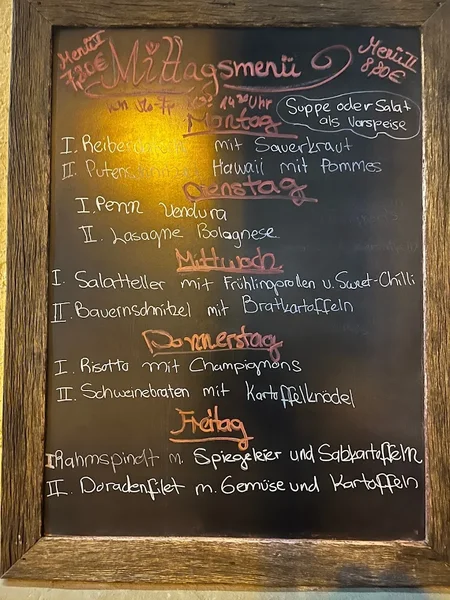 Menü I
7,20€
Mittagsmenü
Menü II
8,80€
Uhr
Suppe oder Salat
als Vorspeise
Montag
I. mit Sauerkraut
II. Hawaii mit Pommes
Dienstag
I. Penn Vendura
II. Lasagne Bolagnese
Mittwoch
I. Salatteller mit Frühlingrollen u. Sweet-Chilli
II. Bauernschnitzel mit Bratkartoffeln
Donnerstag
I. Risotto mit Champignons
II. Schweinebraten mit Kartoffelknödel
Freitag
I Rahmspindt m. Spiegeleier und Salzkartoffeln
II. Doradenfilet m. Gemüse und Kartoffeln